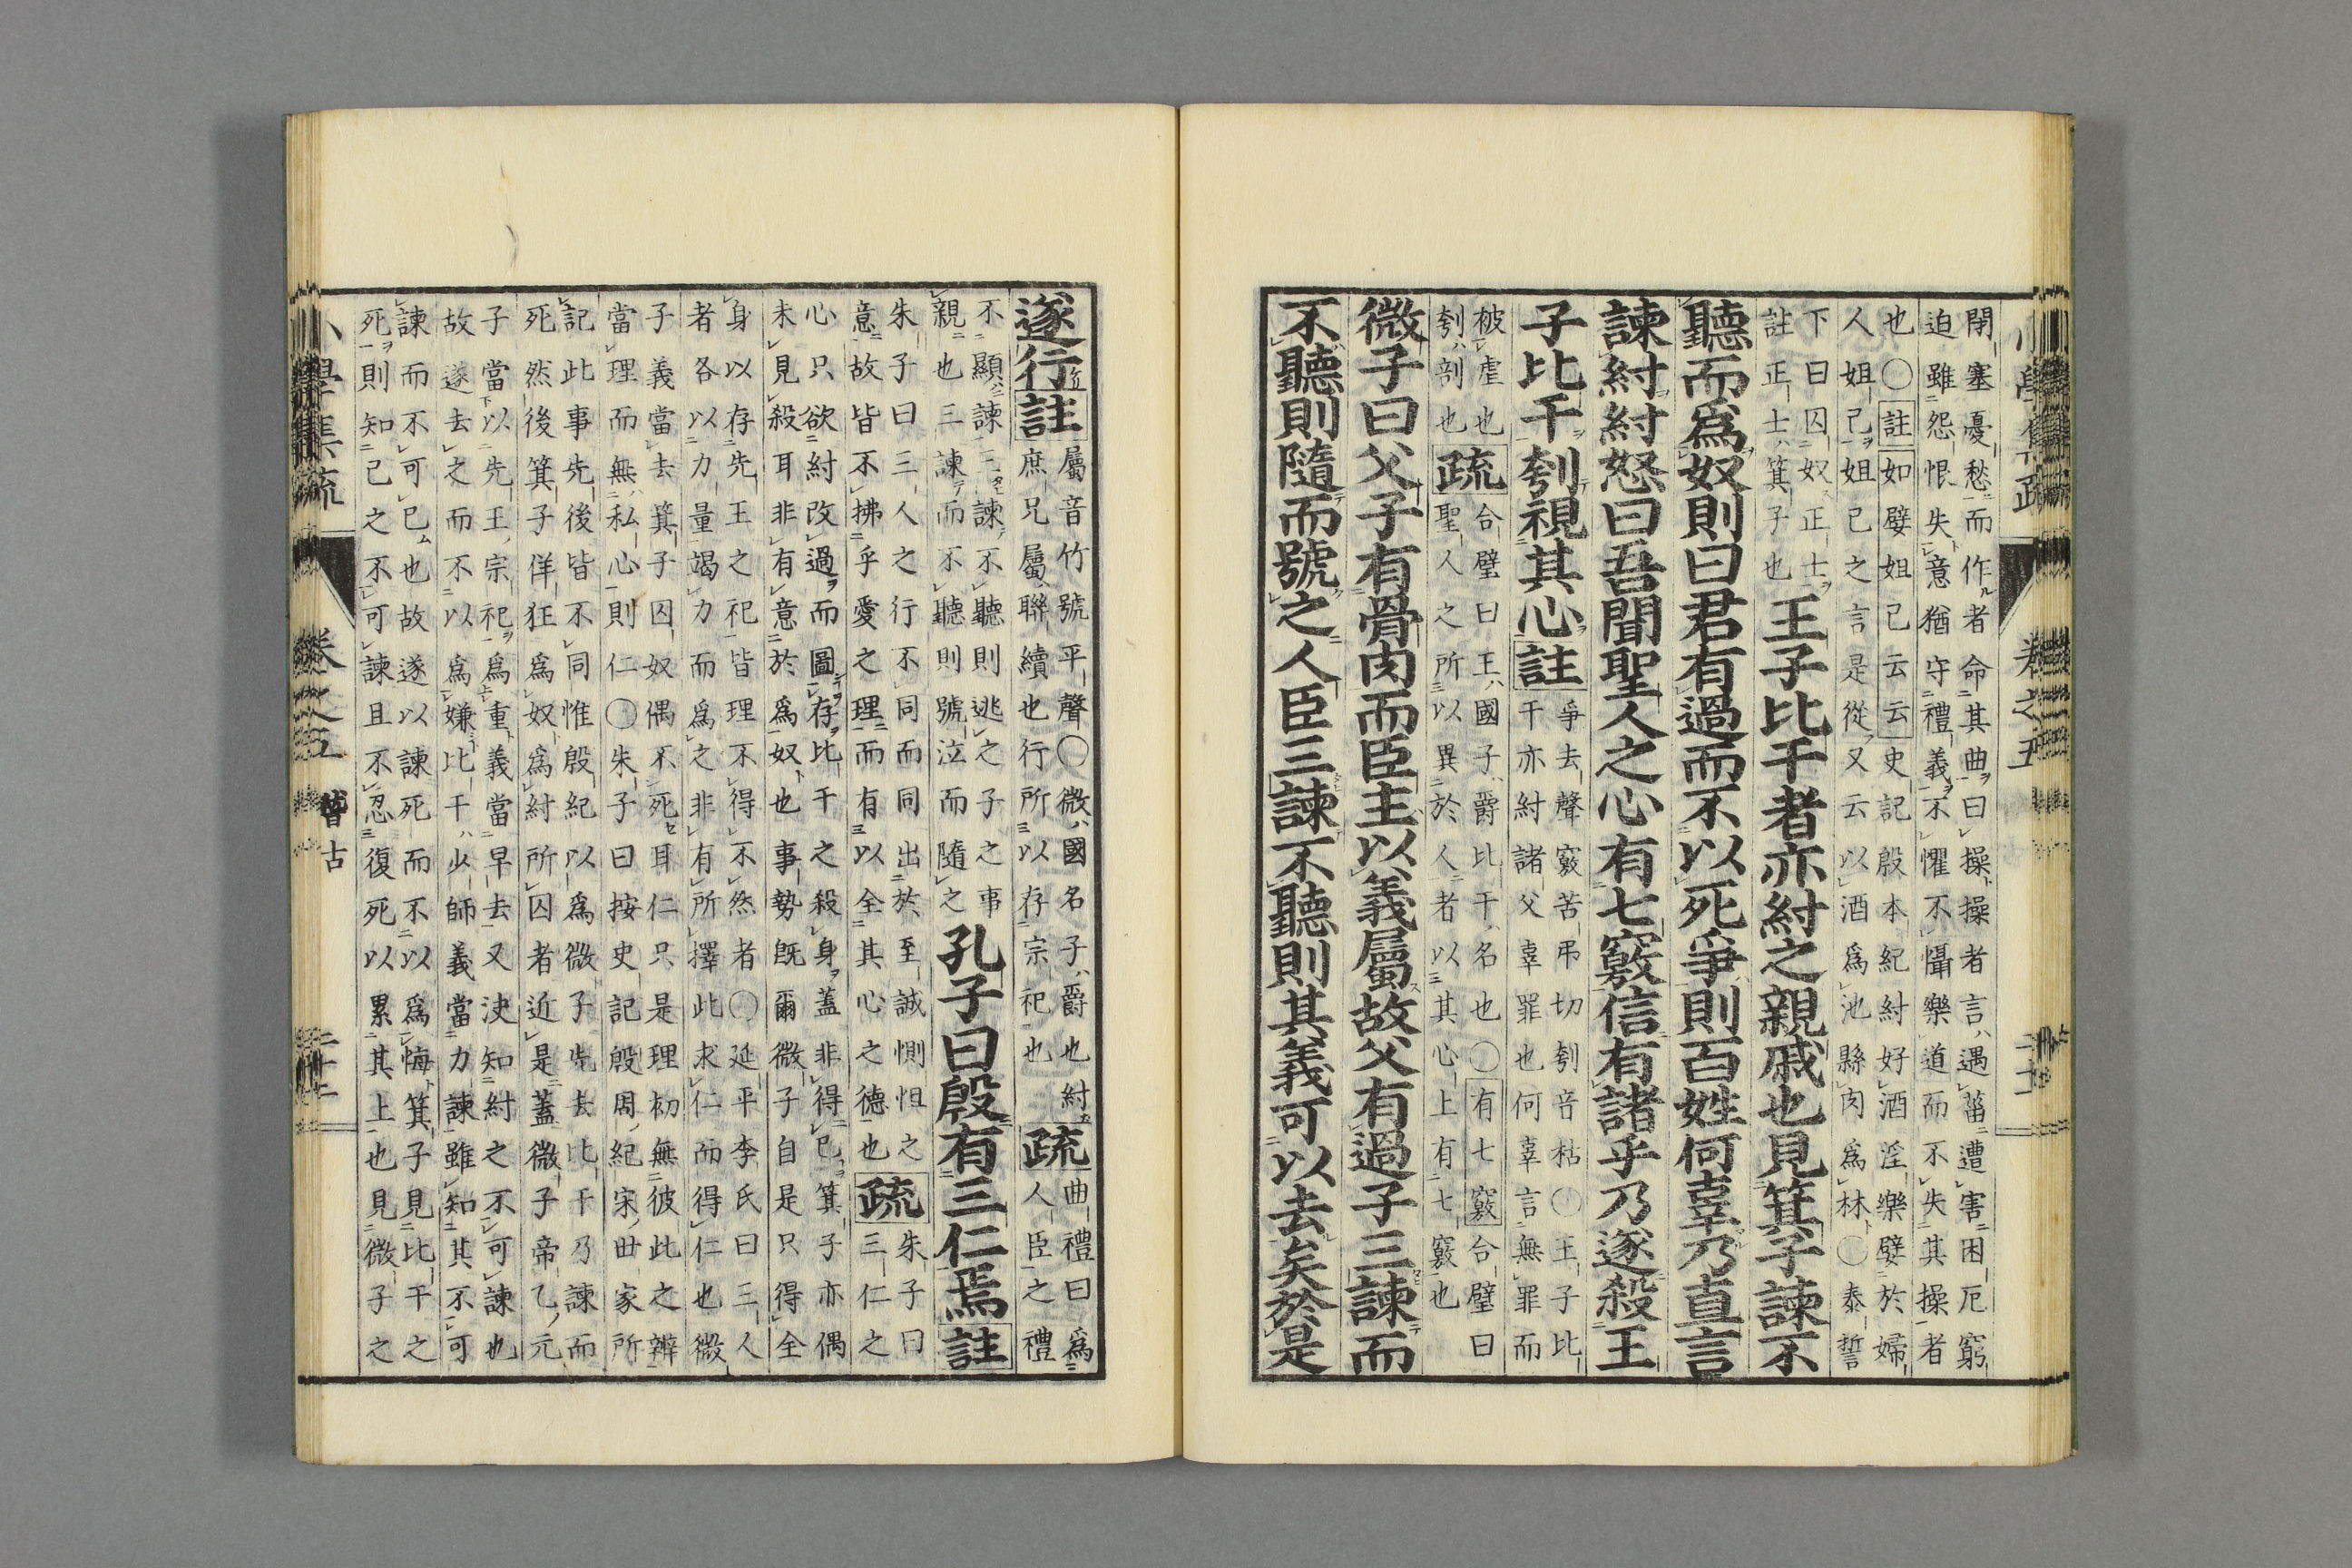 閉塞憂愁而作者命其曲曰操操者言遇菑遭害困厄窮
迫雖怨恨失意猶守禮義不懼不懾樂道而不失其操者
也〇註如嬖妲己云云史記殷本紀紂好酒淫樂嬖於婦
人妲己妲己之言是從又云以酒爲池縣肉爲林〇泰誓
下曰囚奴正士
註正士箕子也
王子比干者亦紂之親戚也見箕子諫不
聽而爲奴則曰君有過而不以死爭則百姓何辜乃直言
諫紂紂怒曰吾聞聖人之心有七竅信有諸乎乃遂殺王
子比干刳視其心註
爭去聲竅苦弔切刳音枯〇王子比
干亦紂諸父辜罪也何辜言無罪而
被虐也
刳剖也
疏
合璧曰王國子爵比干名也〇有七竅合璧曰
聖人之所以異於人者以其心上有七竅也
微子曰父子有骨肉而臣主以義屬故父有過子三諫而
不聽則隨而號之人臣三諫不聽則其義可以去矣於是
小學集疏 卷之五
遂行註
屬音竹號平聲〇微國名子爵也紂
庶兄屬聯續也行所以存宗祀也
疏
曲禮曰爲
人臣之禮
不顯諫三諫不聽則逃之子之事
親也三諫而不聽則號泣而隨之
孔子曰殷有三仁焉註
朱子曰三人之行不同而同出於至誠惻怛之
意故皆不拂乎愛之理而有以全其心之德也
疏
朱子曰
三仁之
心只欲紂改過而圖存比干之殺身蓋非得已箕子亦偶
未見殺耳非有意於爲奴也事勢旣爾微子自是只得全
身以存先王之祀皆理不得不然者〇延平李氏曰三人
者各以力量竭力而爲之非有所擇此求仁而得仁也微
子義當去箕子囚奴偶不死耳仁只是理初無彼此之辨
當理而無私心則仁〇朱子曰按史記殷周紀宋世家所
記此事先後皆不同惟殷紀以爲微子先去比干乃諫而
死然後箕子佯狂爲奴爲紂所囚者近是蓋微子帝乙元
子當以先王宗祀爲重義當早去又決知紂之不可諫也
故遂去之而不以爲嫌比干少師義當力諫雖知其不可
諫而不可已也故遂以諫死而不以爲悔箕子見比干之
死則知己之不可諫且不忍復死以累其上也見微子之
小學集疏 卷之五 稽古 二十二